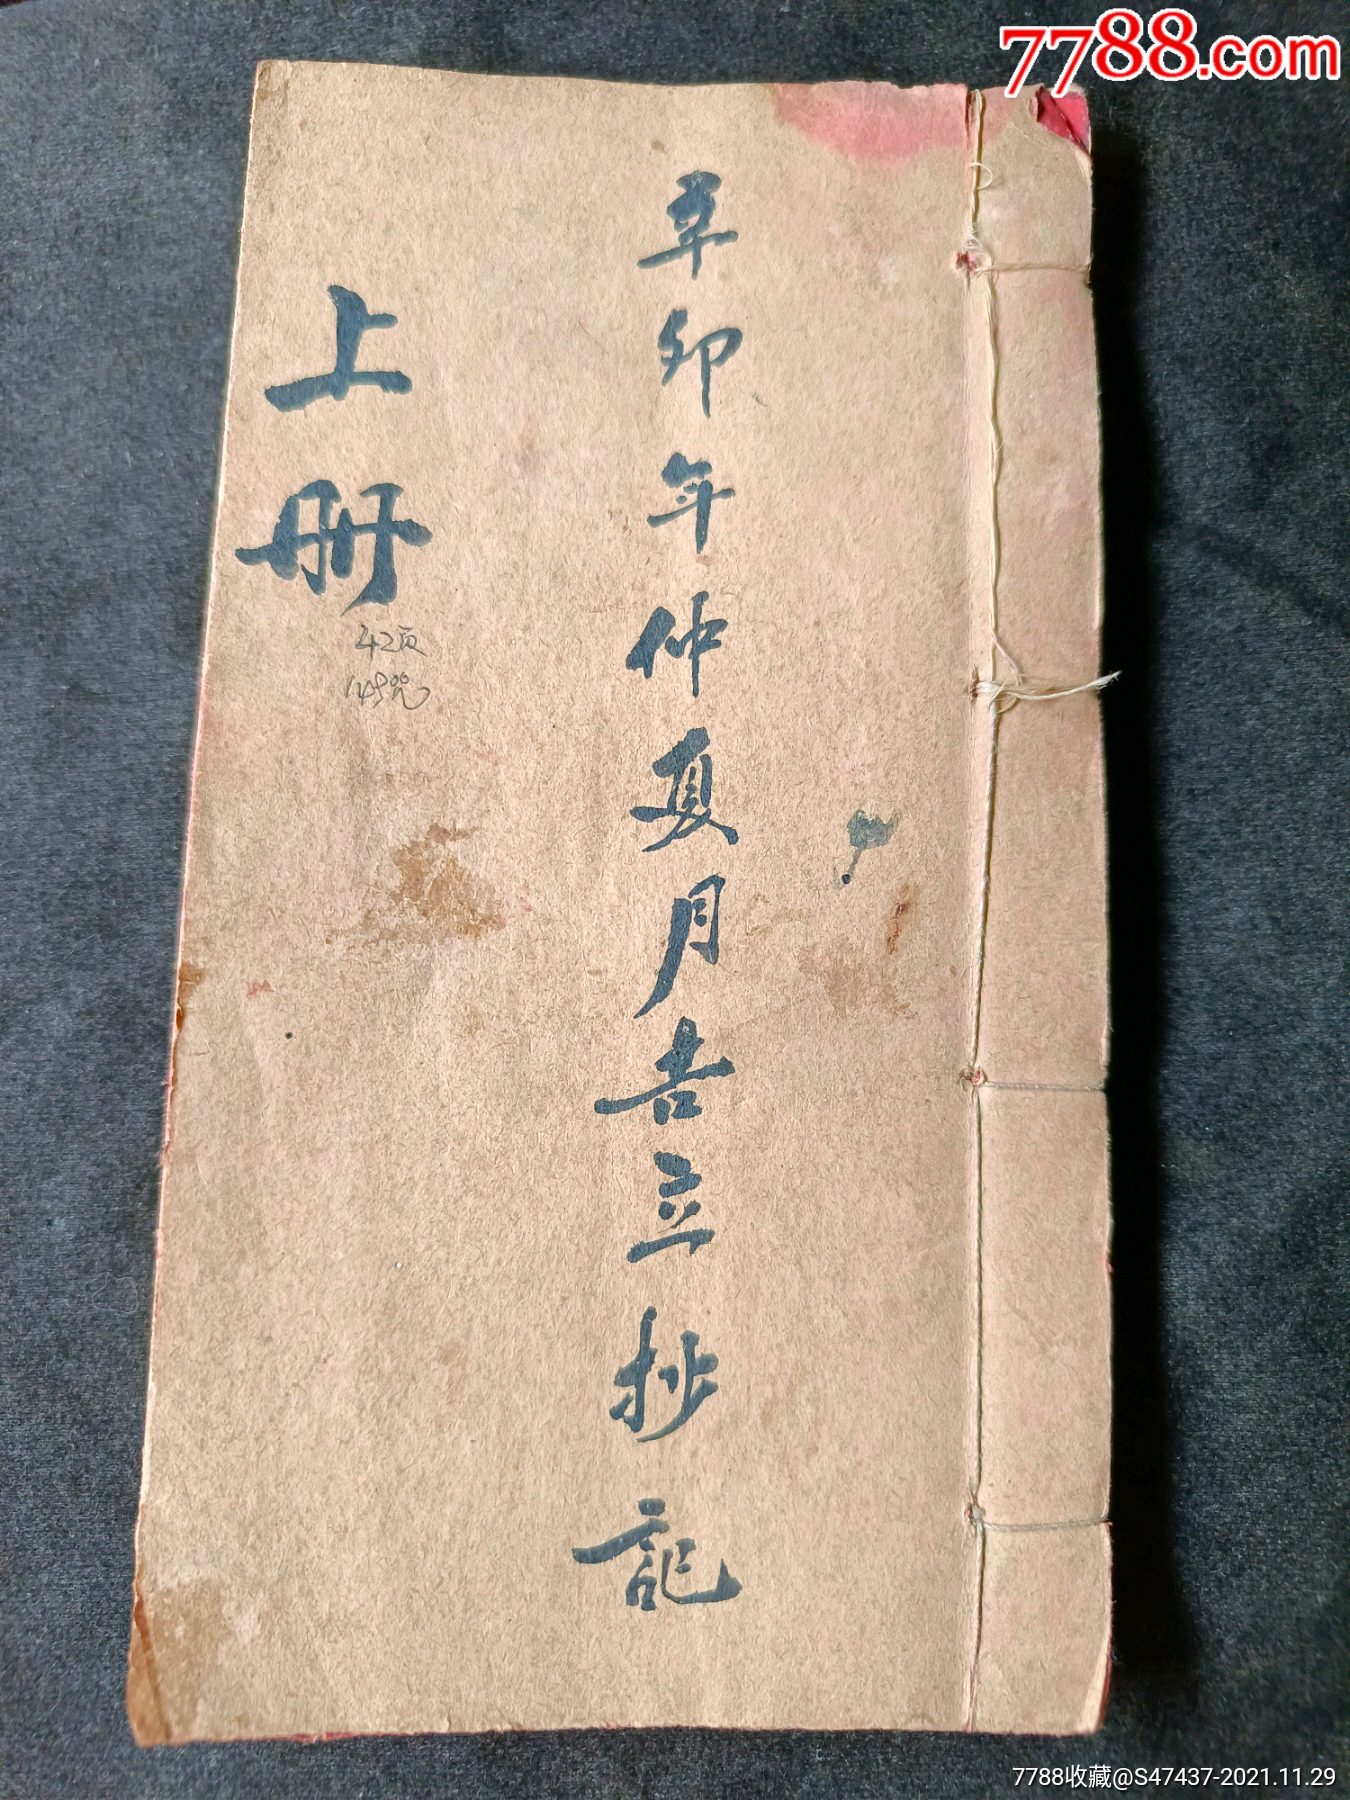 7788.com
辛卯年仲夏月吉立抄記
上册
42页
145咒
7788收藏@S47437-2021.11.29